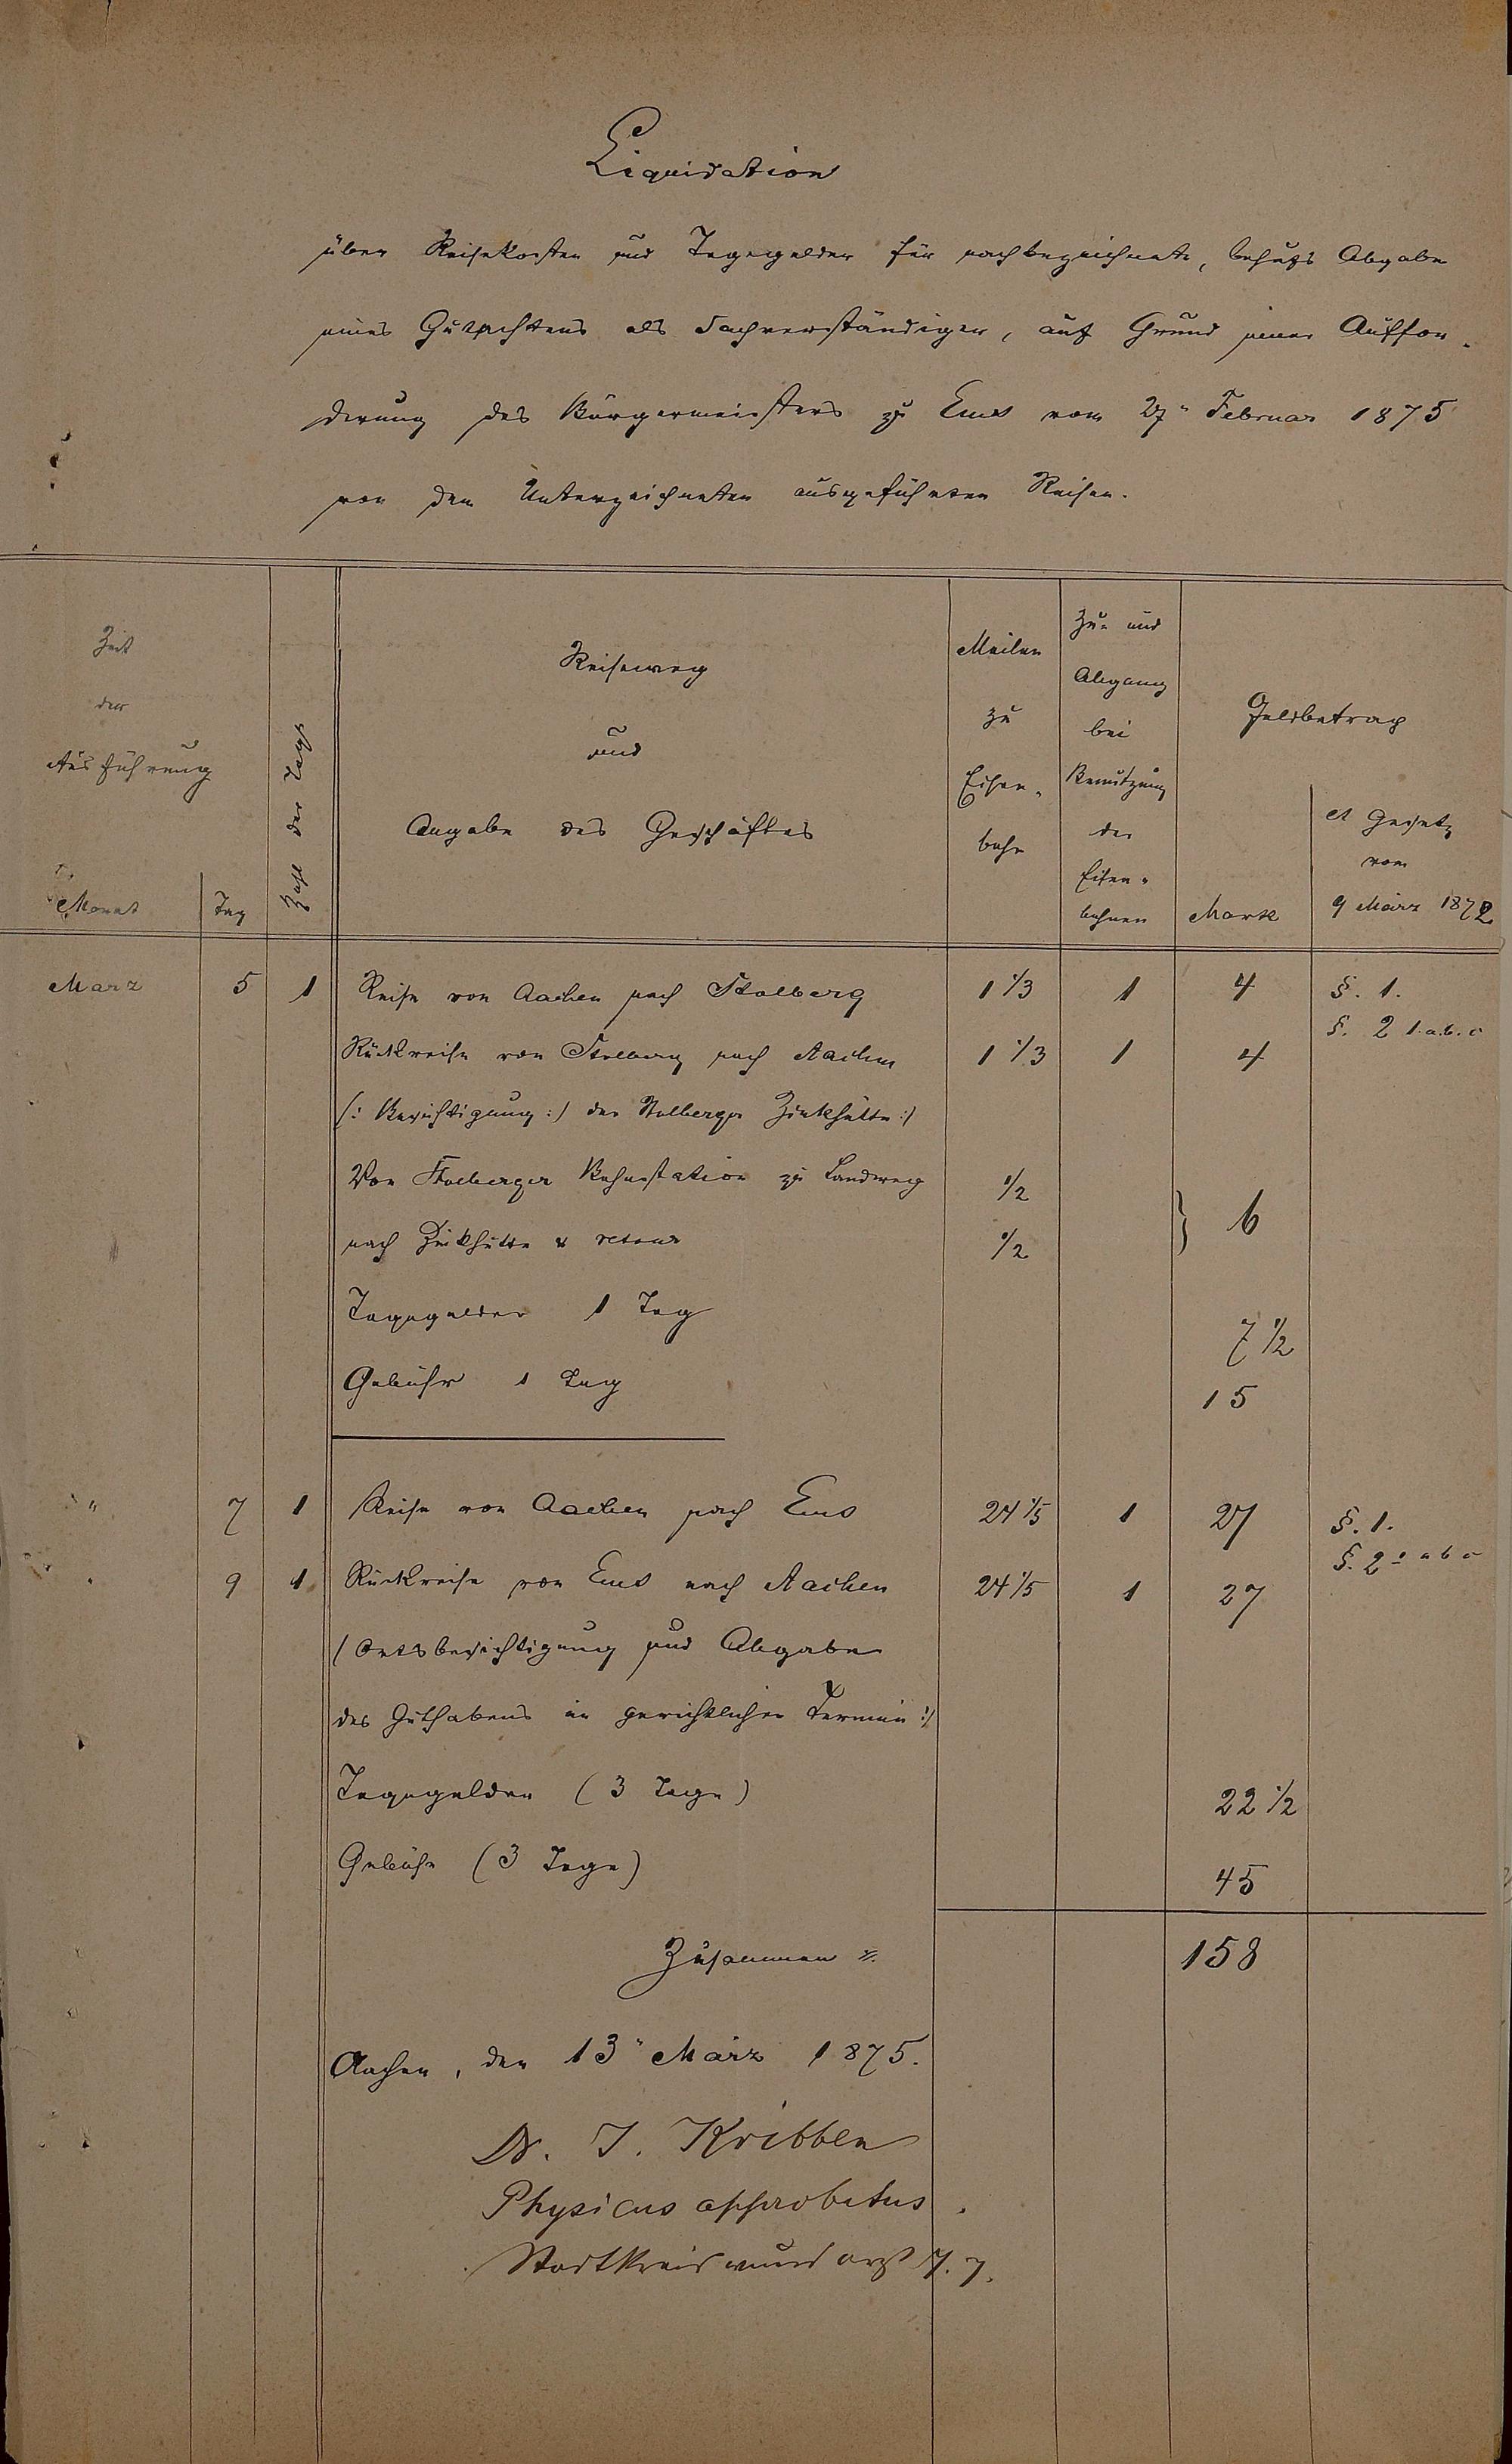 Liquidation
über Reisekosten und Tagegelder für nachbezeichnete, behufs Abgabe
eines Gutachtens als Sachverständiger, auf Grund einer Auffor-
derung des Bürgermeisters zu Ems vom 27ⁿ Februar 1875
von dem Unterzeichneten ausgeführten Reisen.
Zeit der Ausführung
Monat | Tag
Zahl der Tage
Reiseweg und Angabe des Geschäftes
Meilen zu Eisen- bahn
Zu- und Abgang bei Benutzung der Eisen- bahnen
Geldbetrag
Mark
cf Gesetz vom 9 März 1872
März 5 1 Reise von Aachen nach Stolberg 1 1/3 1 4 §. 1.
§. 2 1. a. b. c
Rückreise von Stolberg nach Aachen 1 1/3 1 4
(: Besichtigung :) der Stolberger Zinkhütte :)
Von Stolberger Bahnstation zu Landweg 1/2
nach Zinkhütte & retour 1/2 } 6
Tagegelder 1 Tag 7 1/2
Gebühr 1 Tag 15
" 7 1 Reise von Aachen nach Ems 24 1/5 1 27 §. 1.
§. 2 a b c
" 9 1 Rückreise von Ems nach Aachen 24 1/5 1 27
(Ortsbesichtigung und Abgabe
des Guthabens im gerichtlichen Termin :)
Tagegelder (3 Tage) 22 1/2
Gebühr (3 Tage) 45
Zusammen 158
Aachen, den 13ⁿ März 1875.
Dr. J. Kribben
Physicus approbatus.
Stadtkreiswundarzt